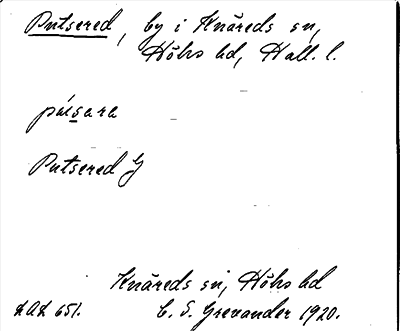 Putsered, by i Knäreds sn,
Höks hd, Hall. l.
pu̇tsara
Putsered G
Knäreds sn, Höks hd
LAL 651. E. S. Grevander 1920.